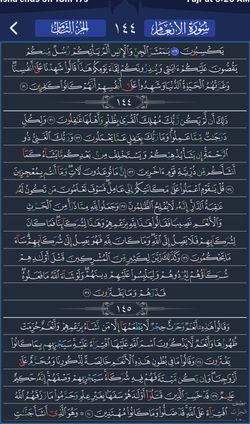 الجزء الثامن ١٤٤ سورة الأنعام
يَكْسِبُونَ ١٢٩ يَٰمَعْشَرَ ٱلْجِنِّ وَٱلْإِنسِ أَلَمْ يَأْتِكُمْ رُسُلٌ مِّنكُمْ
يَقُصُّونَ عَلَيْكُمْ ءَايَٰتِي وَيُنذِرُونَكُمْ لِقَآءَ يَوْمِكُمْ هَٰذَا قَالُوا۟ شَهِدْنَا عَلَىٰٓ أَنفُسِنَا
وَغَرَّتْهُمُ ٱلْحَيَوٰةُ ٱلدُّنْيَا وَشَهِدُوا۟ عَلَىٰٓ أَنفُسِهِمْ أَنَّهُمْ كَانُوا۟ كَٰفِرِينَ ١٣٠
١٤٤
ذَٰلِكَ أَن لَّمْ يَكُن رَّبُّكَ مُهْلِكَ ٱلْقُرَىٰ بِظُلْمٍ وَأَهْلُهَا غَٰفِلُونَ ١٣١ وَلِكُلٍّ
دَرَجَٰتٌ مِّمَّا عَمِلُوا۟ وَمَا رَبُّكَ بِغَٰفِلٍ عَمَّا يَعْمَلُونَ ١٣٢ وَرَبُّكَ ٱلْغَنِيُّ ذُو
ٱلرَّحْمَةِ إِن يَشَأْ يُذْهِبْكُمْ وَيَسْتَخْلِفْ مِنۢ بَعْدِكُم مَّا يَشَآءُ كَمَآ
أَنشَأَكُم مِّن ذُرِّيَّةِ قَوْمٍ ءَاخَرِينَ ١٣٣ إِنَّ مَا تُوعَدُونَ لَءَاتٍ وَمَآ أَنتُم بِمُعْجِزِينَ
١٣٤ قُلْ يَٰقَوْمِ ٱعْمَلُوا۟ عَلَىٰ مَكَانَتِكُمْ إِنِّي عَامِلٌ فَسَوْفَ تَعْلَمُونَ مَن تَكُونُ لَهُۥ
عَٰقِبَةُ ٱلدَّارِ إِنَّهُۥ لَا يُفْلِحُ ٱلظَّٰلِمُونَ ١٣٥ وَجَعَلُوا۟ لِلَّهِ مِمَّا ذَرَأَ مِنَ ٱلْحَرْثِ
وَٱلْأَنْعَٰمِ نَصِيبًا فَقَالُوا۟ هَٰذَا لِلَّهِ بِزَعْمِهِمْ وَهَٰذَا لِشُرَكَآئِنَا فَمَا كَانَ
لِشُرَكَآئِهِمْ فَلَا يَصِلُ إِلَى ٱللَّهِ وَمَا كَانَ لِلَّهِ فَهُوَ يَصِلُ إِلَىٰ شُرَكَآئِهِمْ سَآءَ
مَا يَحْكُمُونَ ١٣٦ وَكَذَٰلِكَ زَيَّنَ لِكَثِيرٍ مِّنَ ٱلْمُشْرِكِينَ قَتْلَ أَوْلَٰدِهِمْ
شُرَكَآؤُهُمْ لِيُرْدُوهُمْ وَلِيَلْبِسُوا۟ عَلَيْهِمْ دِينَهُمْ وَلَوْ شَآءَ ٱللَّهُ مَا فَعَلُوهُ
فَذَرْهُمْ وَمَا يَفْتَرُونَ ١٣٧
١٤٥
وَقَالُوا۟ هَٰذِهِۦٓ أَنْعَٰمٌ وَحَرْثٌ حِجْرٌ لَّا يَطْعَمُهَآ إِلَّا مَن نَّشَآءُ بِزَعْمِهِمْ وَأَنْعَٰمٌ حُرِّمَتْ
ظُهُورُهَا وَأَنْعَٰمٌ لَّا يَذْكُرُونَ ٱسْمَ ٱللَّهِ عَلَيْهَا ٱفْتِرَآءً عَلَيْهِ سَيَجْزِيهِم بِمَا كَانُوا۟
يَفْتَرُونَ ١٣٨ وَقَالُوا۟ مَا فِي بُطُونِ هَٰذِهِ ٱلْأَنْعَٰمِ خَالِصَةٌ لِّذُكُورِنَا وَمُحَرَّمٌ عَلَىٰٓ
أَزْوَٰجِنَا وَإِن يَكُن مَّيْتَةً فَهُمْ فِيهِ شُرَكَآءُ سَيَجْزِيهِمْ وَصْفَهُمْ إِنَّهُۥ حَكِيمٌ
عَلِيمٌ ١٣٩ قَدْ خَسِرَ ٱلَّذِينَ قَتَلُوٓا۟ أَوْلَٰدَهُمْ سَفَهًۢا بِغَيْرِ عِلْمٍ وَحَرَّمُوا۟ مَا رَزَقَهُمُ ٱللَّهُ
ٱفْتِرَآءً عَلَى ٱللَّهِ قَدْ ضَلُّوا۟ وَمَا كَانُوا۟ مُهْتَدِينَ ١٤٠ وَهُوَ ٱلَّذِيٓ أَنشَأَ جَنَّٰتٍ